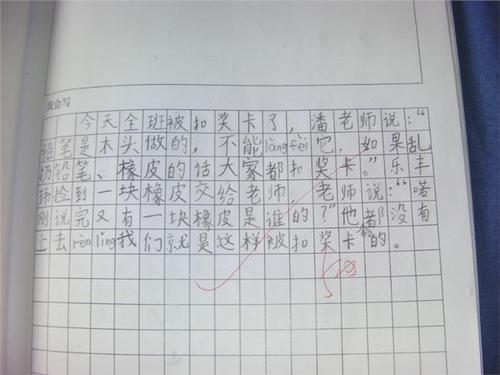 我会写
今天全班被扣奖卡了，潘老师说：“
铅笔是木头做的，不能làngfèi它，如果乱
扔铅笔、橡皮的话大家都扣奖卡。”乐丰
捡到一块橡皮交给老师，老师说：“喏
刚说完又有一块橡皮是谁的？”他都没有
上去rènlǐng我们就是这样被扣奖卡的。